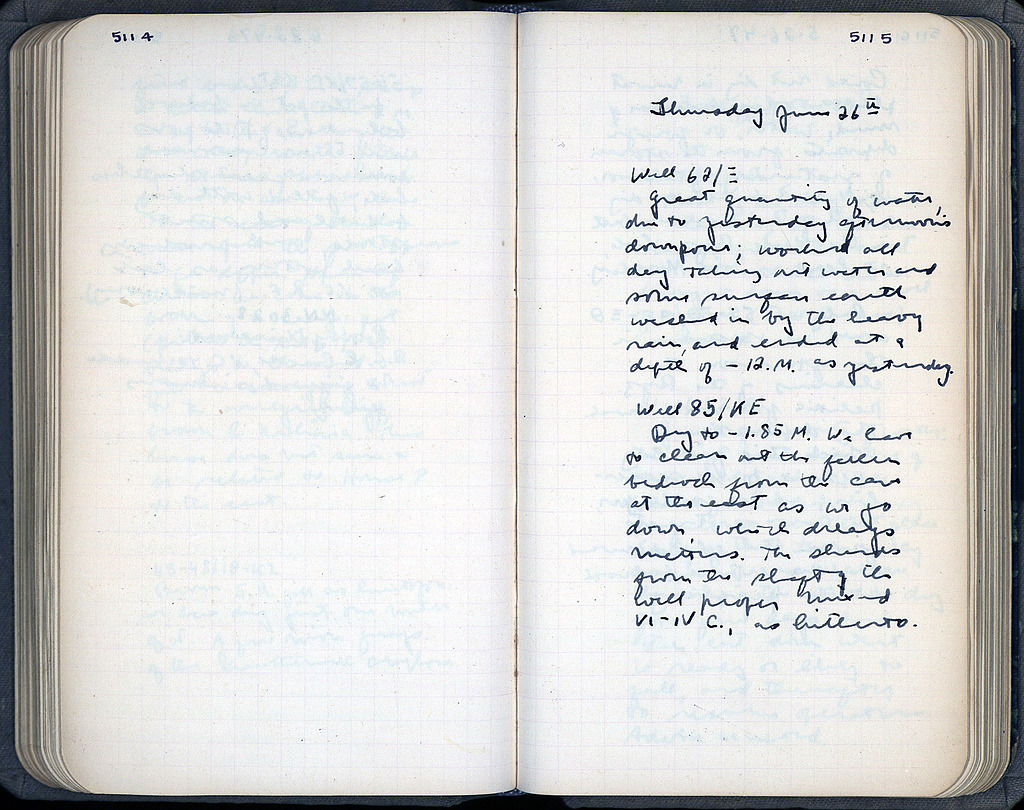 5114
5115
Thursday June 26th
Well 62/Ξ
Great quantity of water,
due to yesterday afternoon's
downpour; worked all
day taking out water and
some surface earth
washed in by the heavy
rain, and ended at a
depth of -12.M. as yesterday.
Well 85/KE
Dug to -1.85 M. We have
to clean out the fallen
bedrock from the cave
at the east as we go
down, which delays
matters. The sherds
from the shaft of the
well proper mixed
VI-IV C., as hitherto.